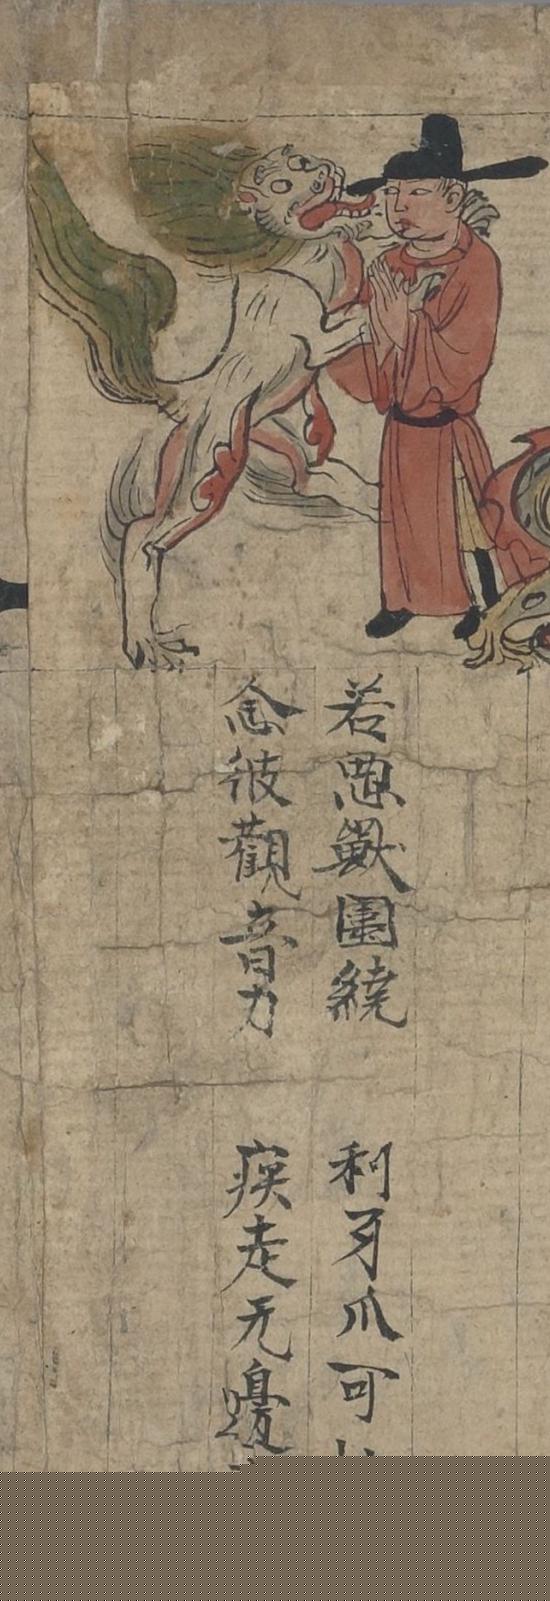 若惡獸圍繞 利牙爪可
念彼觀音力 疾走无邊